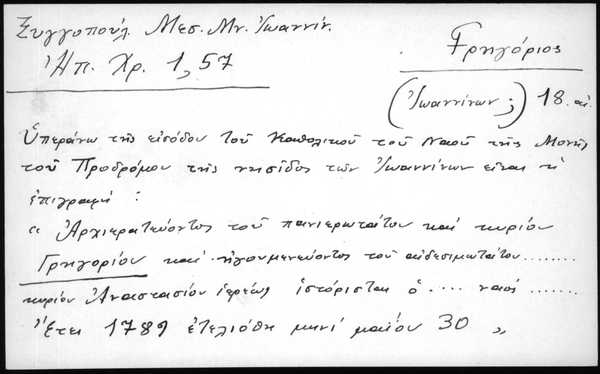 Ξυγγοπούλ. Μεσ. Μν. Ἰωαννίν.
Ἠπ. Χρ. 1, 57
Γρηγόριος
(Ἰωαννίνων;) 18. αἰ.
Ὑπεράνω τῆς εἰσόδου τοῦ Καθολικοῦ τοῦ Ναοῦ τῆς Μονῆς
τοῦ Προδρόμου τῆς νησῖδος τῶν Ἰωαννίνων εἶναι ἡ
ἐπιγραφή :
" Ἀρχιερατεύοντος τοῦ πανιερωτάτου καὶ κυρίου
Γρηγορίου καὶ ἡγουμενεύοντος τοῦ αἰδεσιμωτάτου........
κυρίου Ἀναστασίου ἱερέως ἱστόρισται ὁ .... ναοί .......
Ἔτει 1789 ἐτελιόθη μηνί μαΐου 30 "